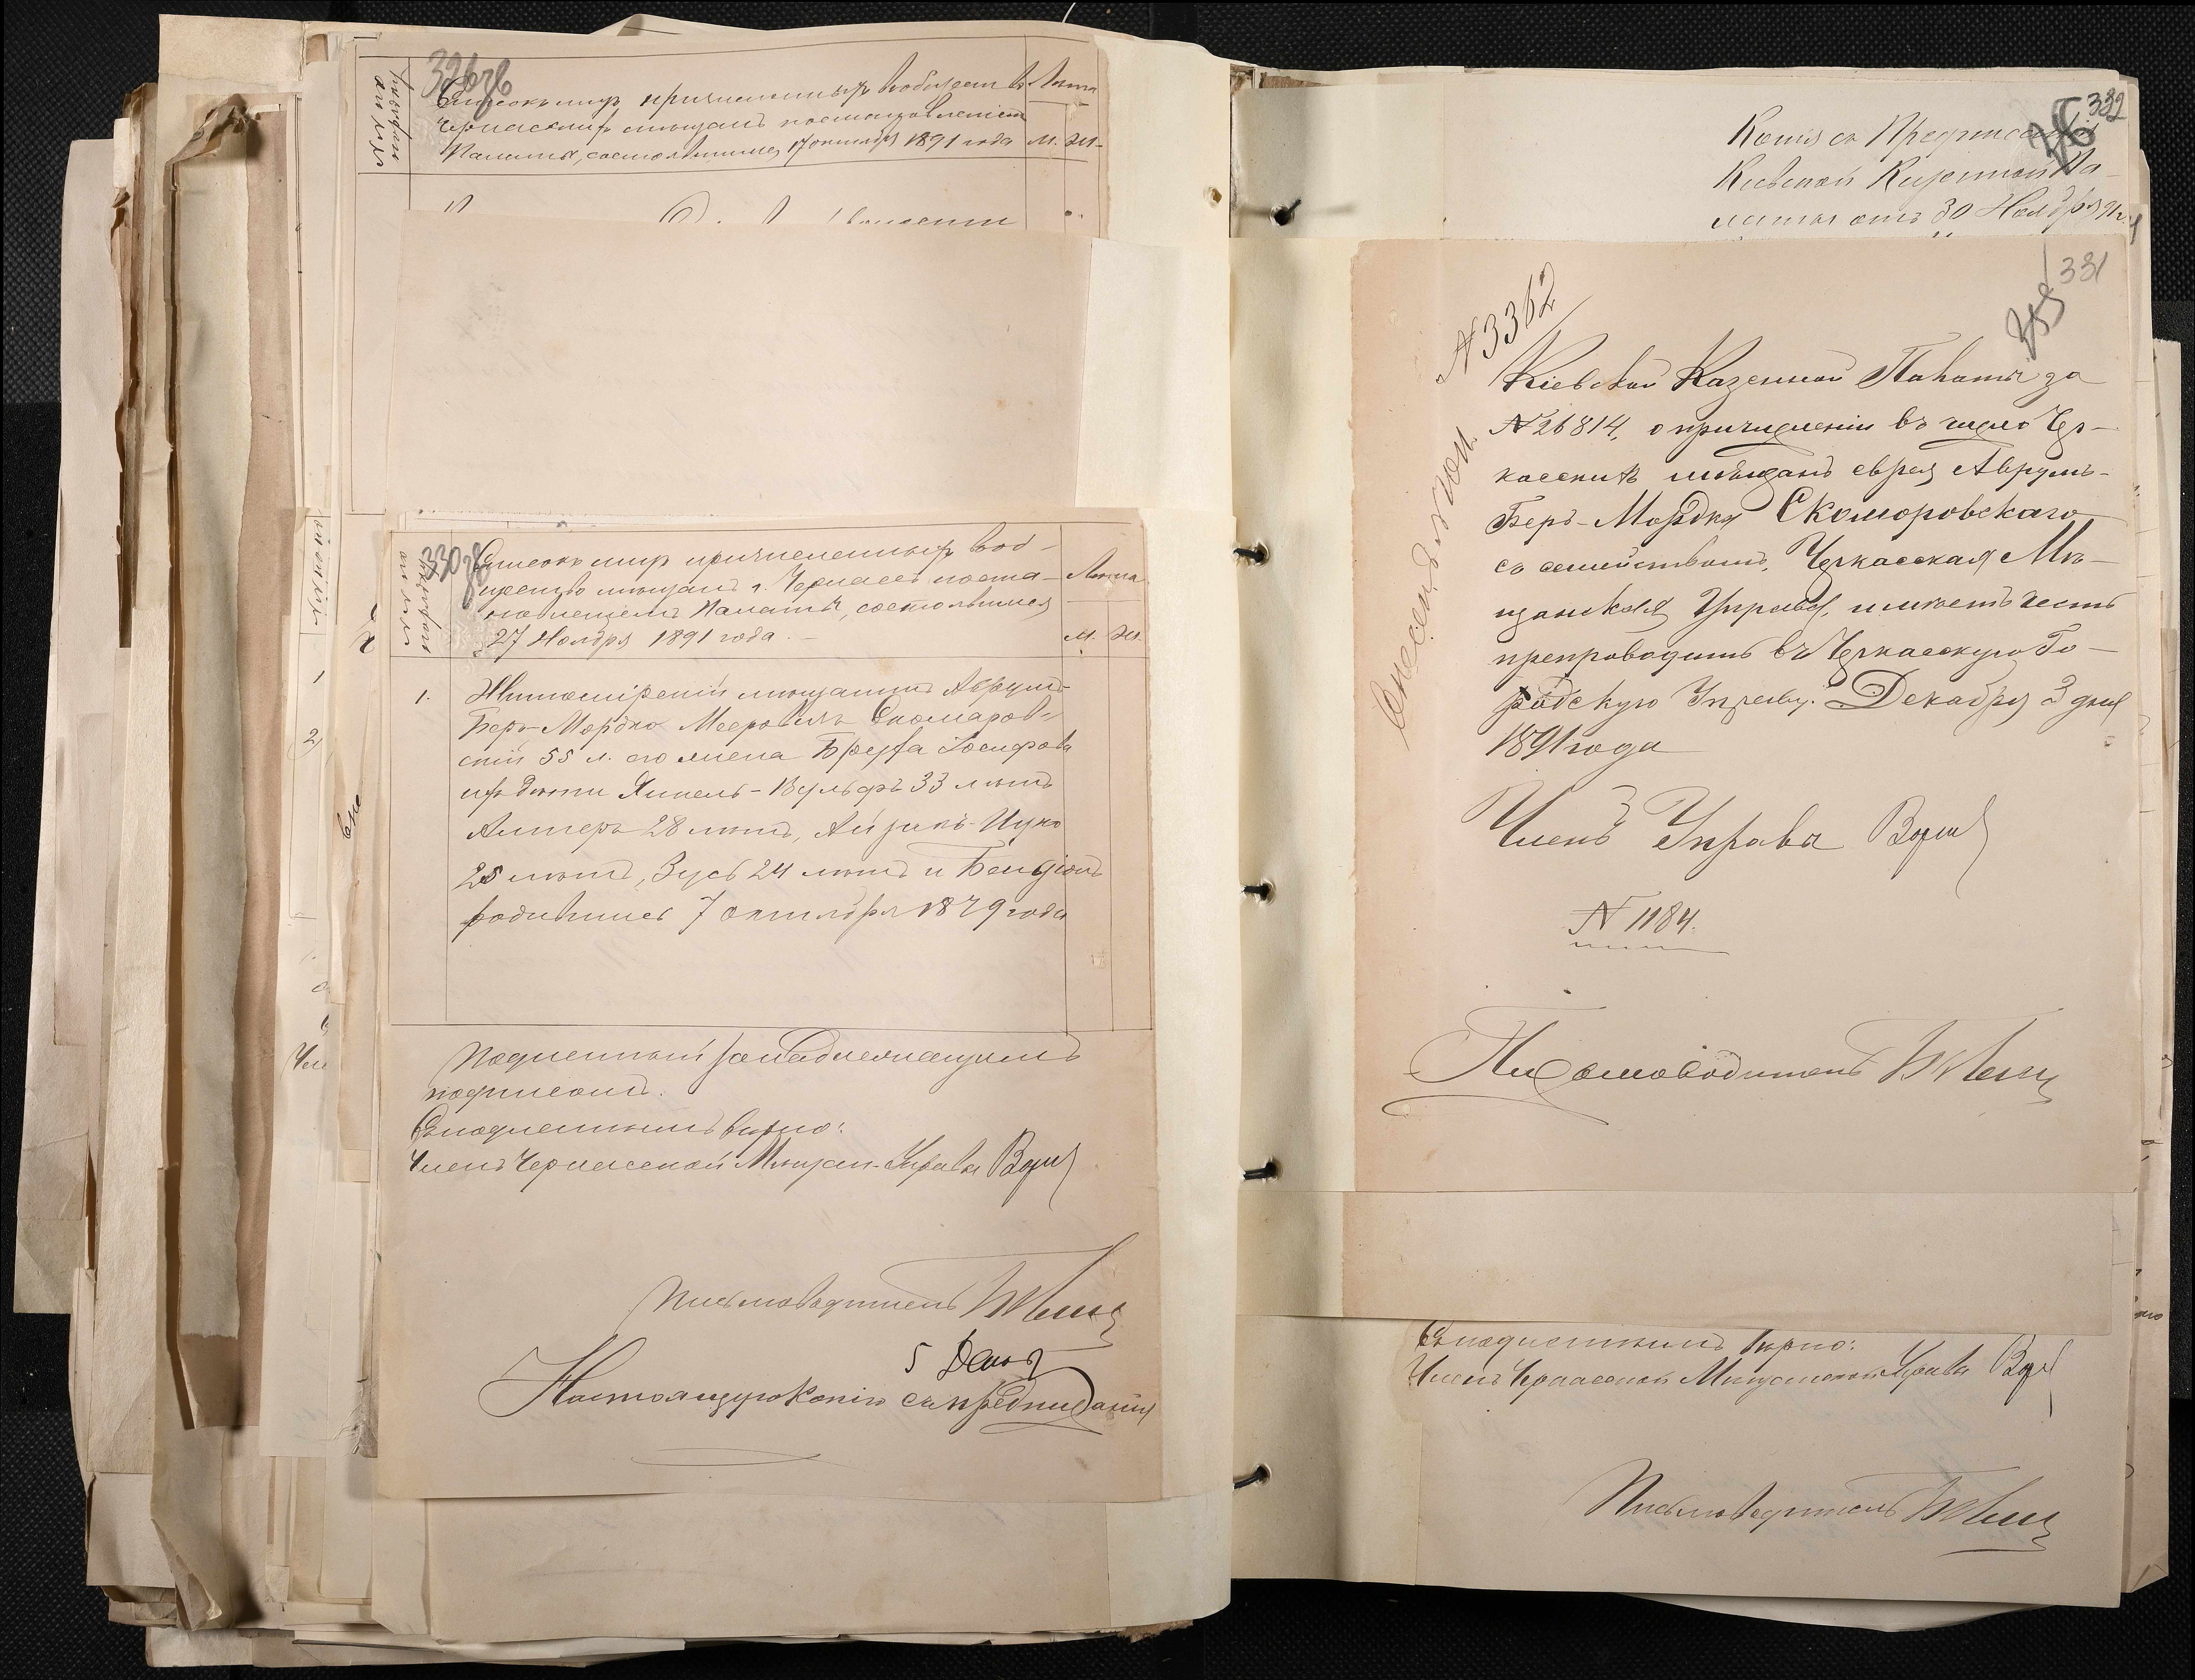 Списокъ лицъ причисленныхъ въ общество
Черкасскихъ мѣщанъ постановленіемъ
Палаты, состоявшимся 17 октября 1891 года
Лѣта
М. Ж.
330
Списокъ лицъ причисленныхъ въ об-
щество мѣщанъ г. Черкасъ поста-
новленіемъ Палаты, состоявшимся
27 Ноября 1891 года.
Лѣта
М. Ж.
1. Житомірскій мѣщанинъ Аврумъ-
Беръ-Мордко Мееровичъ Скомаров-
скій 55 л. его жена Брейха Іосифова
ихъ дѣти Янкель-Вульфъ 33 лѣтъ
Алтеръ 28 лѣтъ, Айзикъ-Ицко
25 лѣтъ, Зусь 24 лѣтъ и Бенціонъ
родившійся 7 октября 1879 года
Подлинный за надлежащимъ
подписомъ.
Съ подлиннымъ вѣрно:
Членъ Черкасской Мѣщан. Управы
Письмоводитель
5 Декаб
Настоящую копію съ предписанія
332
Копія съ Предписанія
Кіевской Казенной Па-
латы отъ 30 Ноября 91 г.
331
N 3362
Кіевской Казенной Палаты за
N 26814, о причисленіи въ число Чер-
касскихъ мѣщанъ еврея Аврумъ-
Беръ-Мордка Скоморовскаго
съ семействомъ, Черкасская Мѣ-
щанская Управа, имѣетъ честь
препроводить въ Черкасскую Го-
родскую Управу. Декабря 3 дня
1891 года
Членъ Управы
N 1184.
Письмоводитель
Съ подлиннымъ вѣрно:
Членъ Черкасской Мѣщанской Управы
Письмоводитель